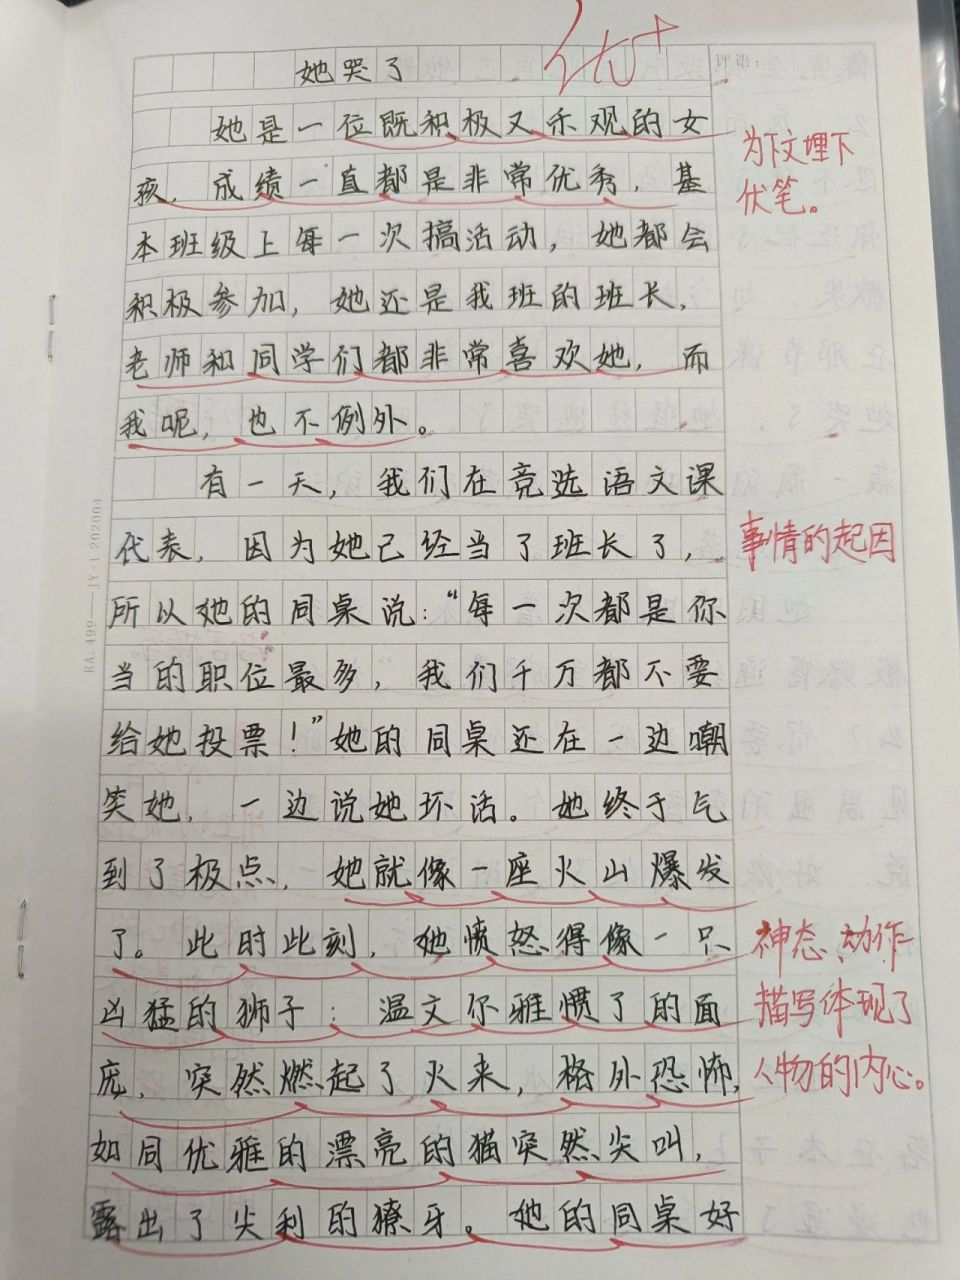 优+
她哭了
评语:
她是一位既积极又乐观的女
孩，成绩一直都是非常优秀，基
本班级上每一次搞活动，她都会
积极参加，她还是我班的班长，
老师和同学们都非常喜欢她，而
我呢，也不例外。
为下文埋下
伏笔。
有一天，我们在竞选语文课
代表，因为她已经当了班长了，
所以她的同桌说：“每一次都是你
当的职位最多，我们千万都不要
给她投票！”她的同桌还在一边嘲
笑她，一边说她坏话。她终于气
到了极点，她就像一座火山爆发
了。此时此刻，她愤怒得像一只
凶猛的狮子：温文尔雅惯了的面
庞，突然燃起了火来，格外恐怖，
如同优雅的漂亮的猫突然尖叫，
露出了尖利的獠牙。她的同桌好
事情的起因
神态、动作
描写体现了
人物的内心。
RA.499—JY-1 202004